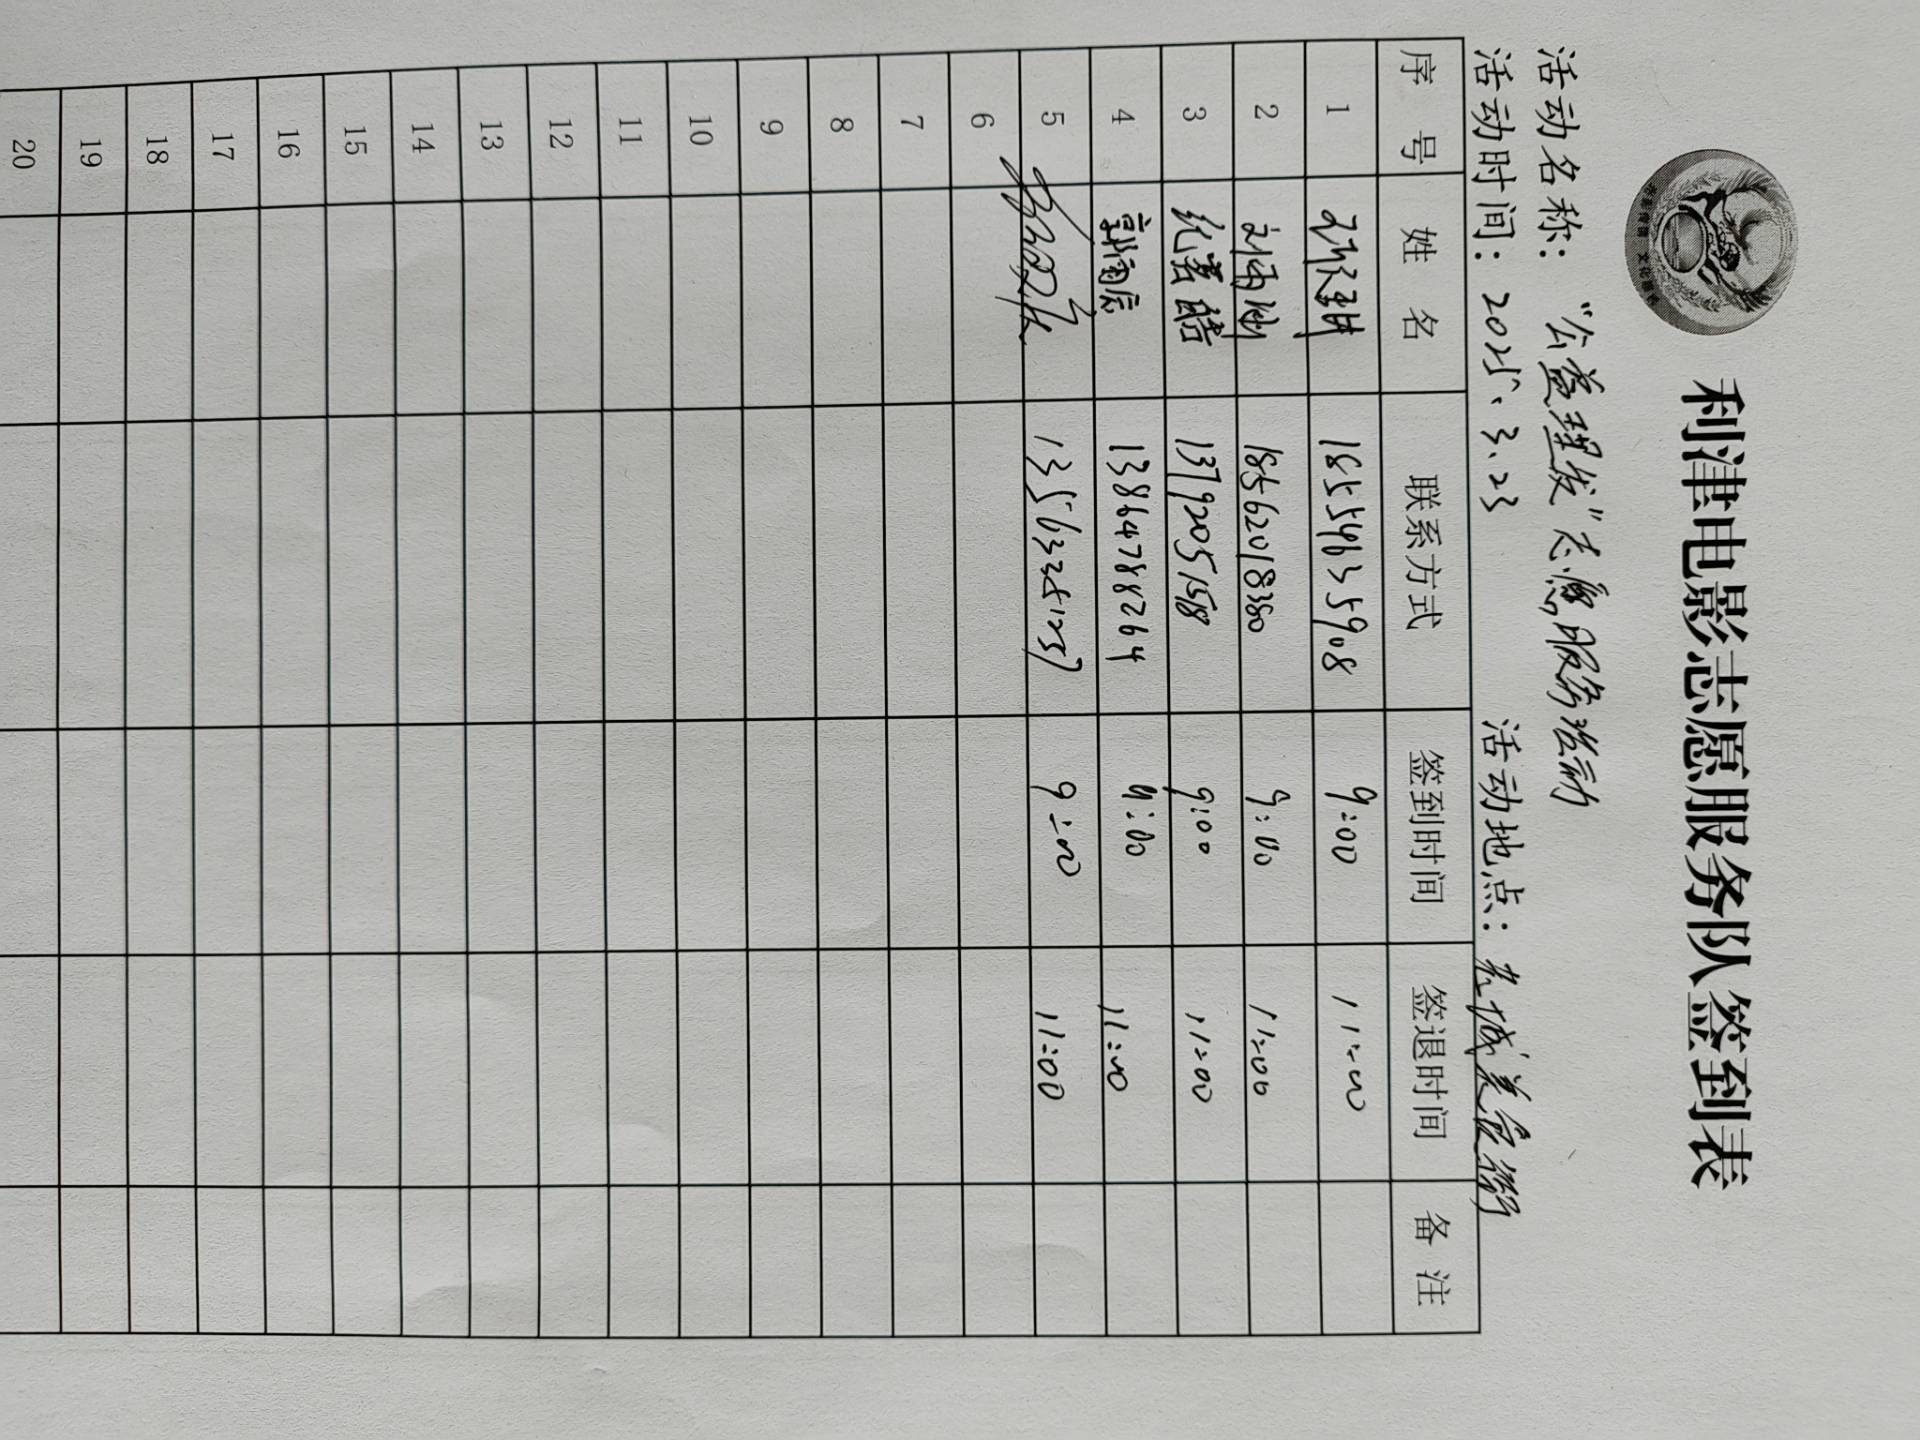 利津电影志愿服务队签到表
活动名称：“公益理发”志愿服务活动
活动时间：2025.3.23 活动地点：
序号 姓名 联系方式 签到时间 签退时间 备注
1 18554635908 9:00 11:00
2 18562018380 9:00 11:00
3 纪嘉皓 13792051518 9:00 11:00
4 郭雨辰 13864788264 9:00 11:00
5 9:00 11:00
6
7
8
9
10
11
12
13
14
15
16
17
18
19
20